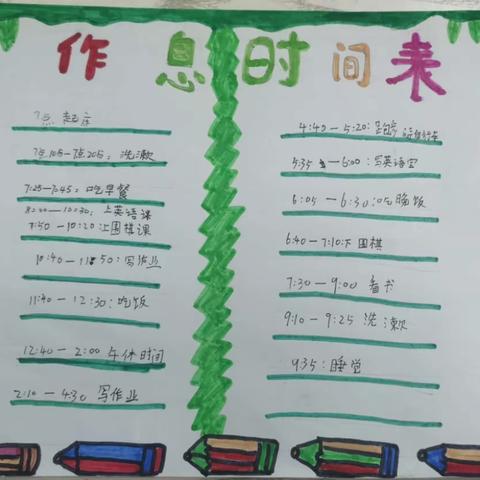 作息时间表
7点 起床
7点10分-7点20分：洗漱
7:25-7:45：吃早餐
8:20-10:30：上英语课
7:50-10:20：上围棋课
10:40-11:50：写作业
11:40-12:30：吃饭
12:40-2:00 午休时间
2:10-4:30 写作业
4:40-5:20：跑步
5:35-6:00：写英语
6:05-6:30：吃晚饭
6:40-7:10：下围棋
7:30-9:00 看书
9:10-9:25 洗漱
9:35：睡觉